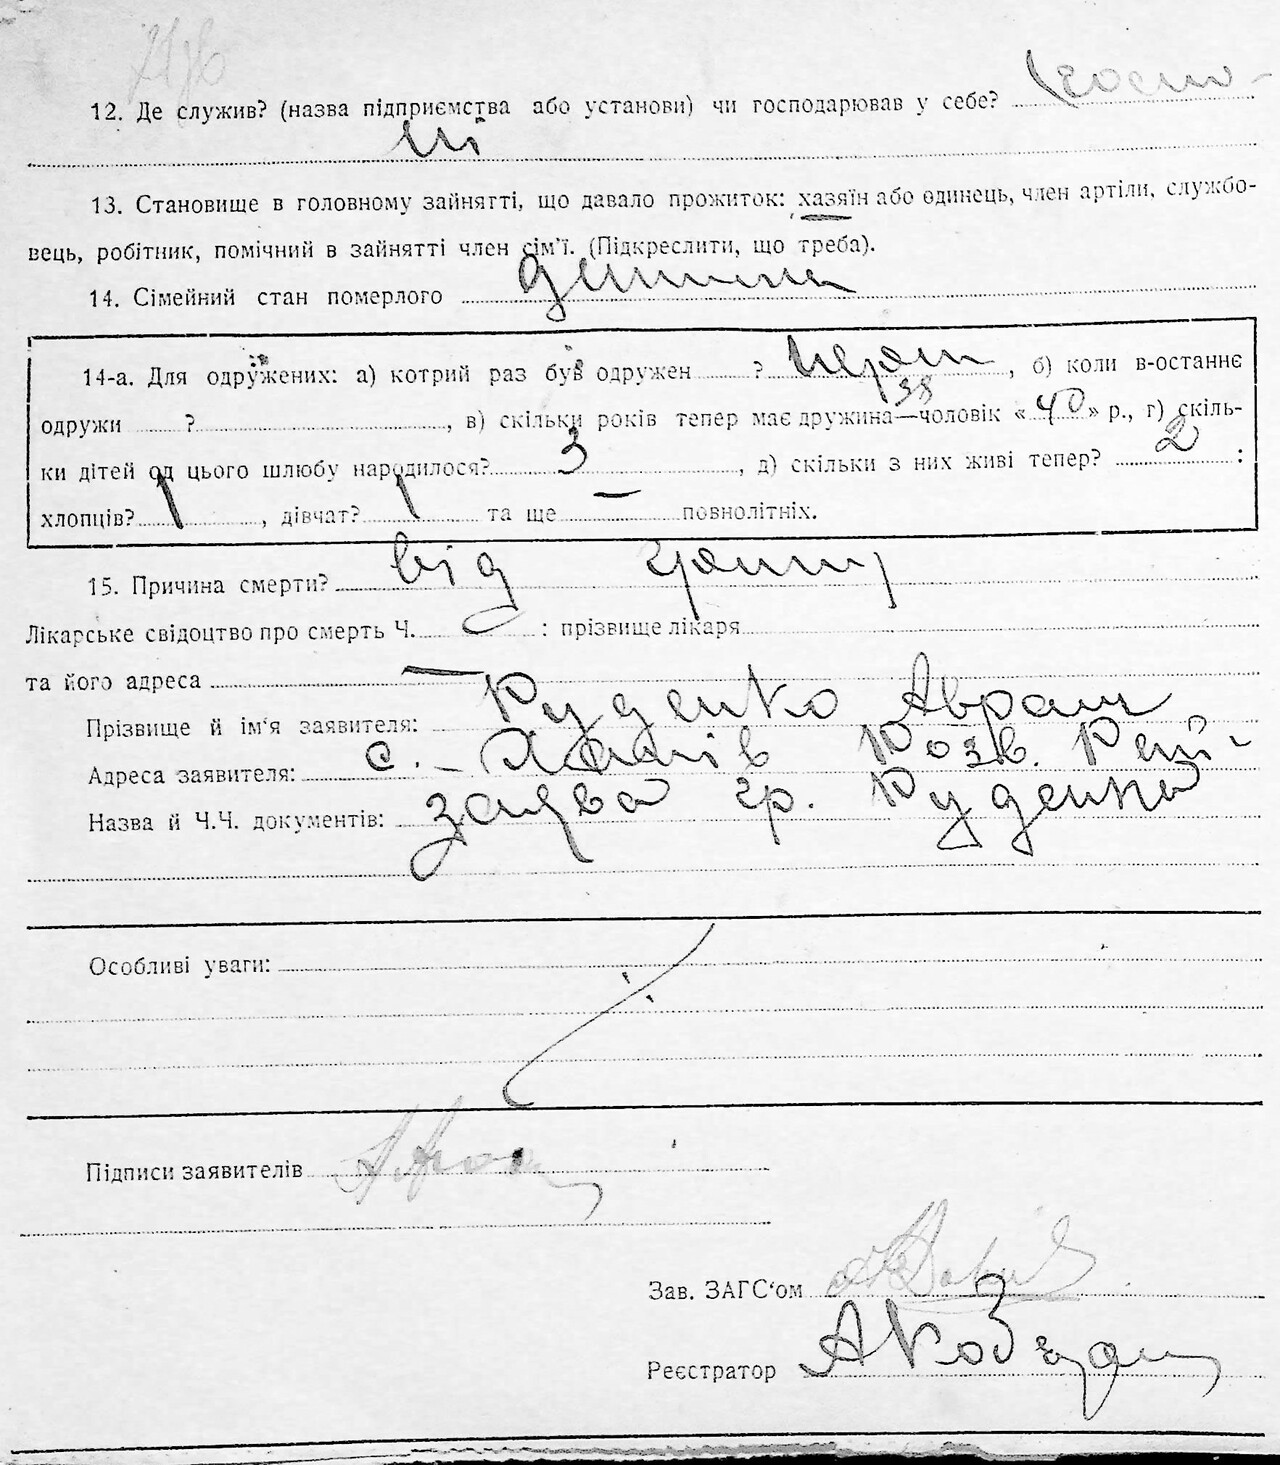 12. Де служив? (назва підприємства або установи) чи господарював у себе?
13. Становище в головному зайнятті, що давало прожиток: хазяїн або одинець, член артіли, службо-
вець, робітник, помічний в зайнятті член сім'ї. (Підкреслити, що треба).
14. Сімейний стан померлого дитина
14-а. Для одружених: а) котрий раз був одружен ? перш, б) коли в-останнє
38
одружи ? , в) скільки років тепер має дружина—чоловік «40» р., г) скіль-
ки дітей од цього шлюбу народилося? 3, д) скільки з них живі тепер? 2 :
хлопців? 1, дівчат? 1 та ще — повнолітніх.
15. Причина смерти? від грипу
Лікарське свідоцтво про смерть Ч. : прізвище лікаря
та його адреса —
Прізвище й ім'я заявителя: Руденко Аврам
Адреса заявителя: с. Розв. Рай-
Назва й Ч.Ч. документів: заява гр. Руденка
Особливі уваги:
Підписи заявителів
Зав. ЗАГС'ом
Реєстратор